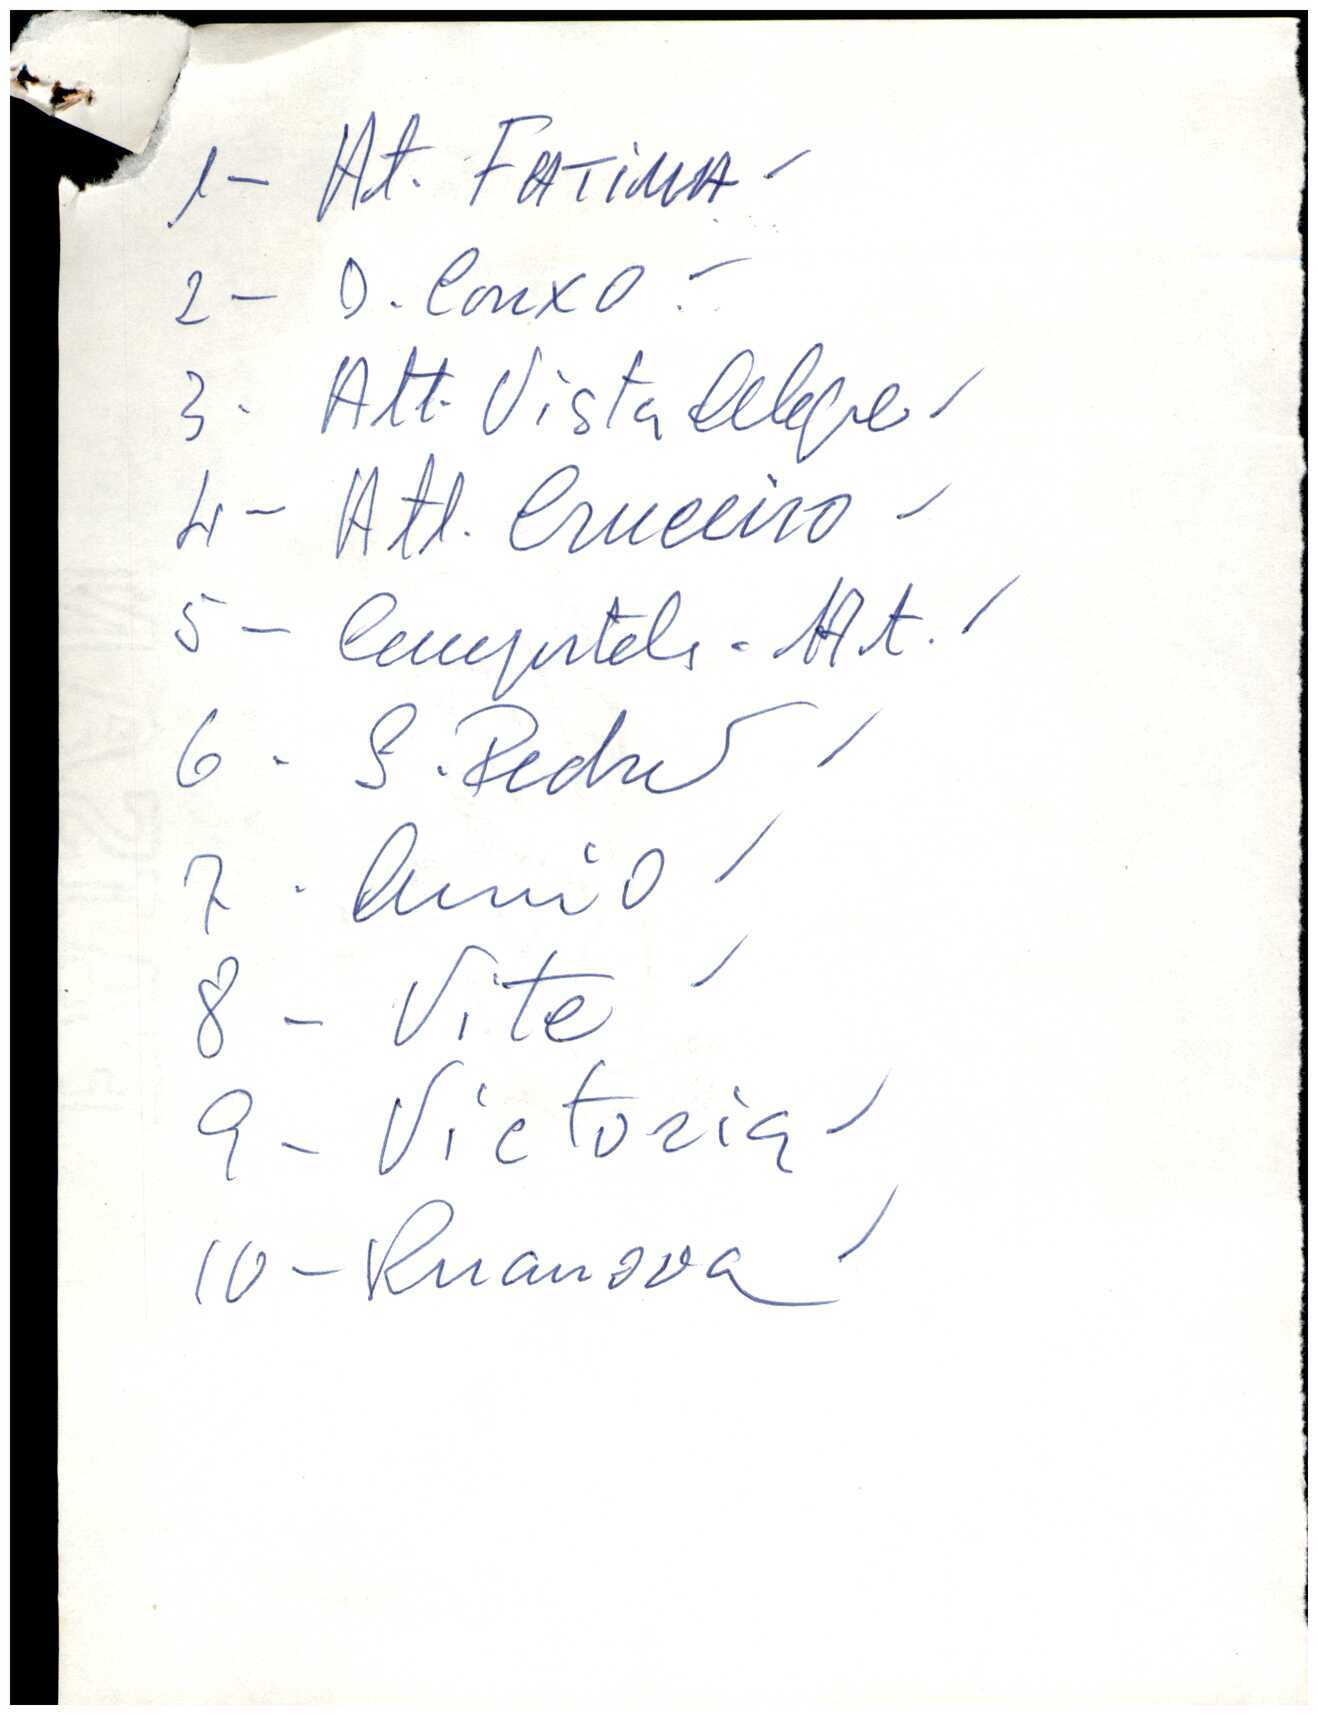 1- At. FATiMA
2- D. Conxo
3. Atl. Vista Alegre
4- Atl. Cruceiro
5- Compostela. At.
6. S. Pedro
7.
8- Vite
9- Victoria
10- Ruanova